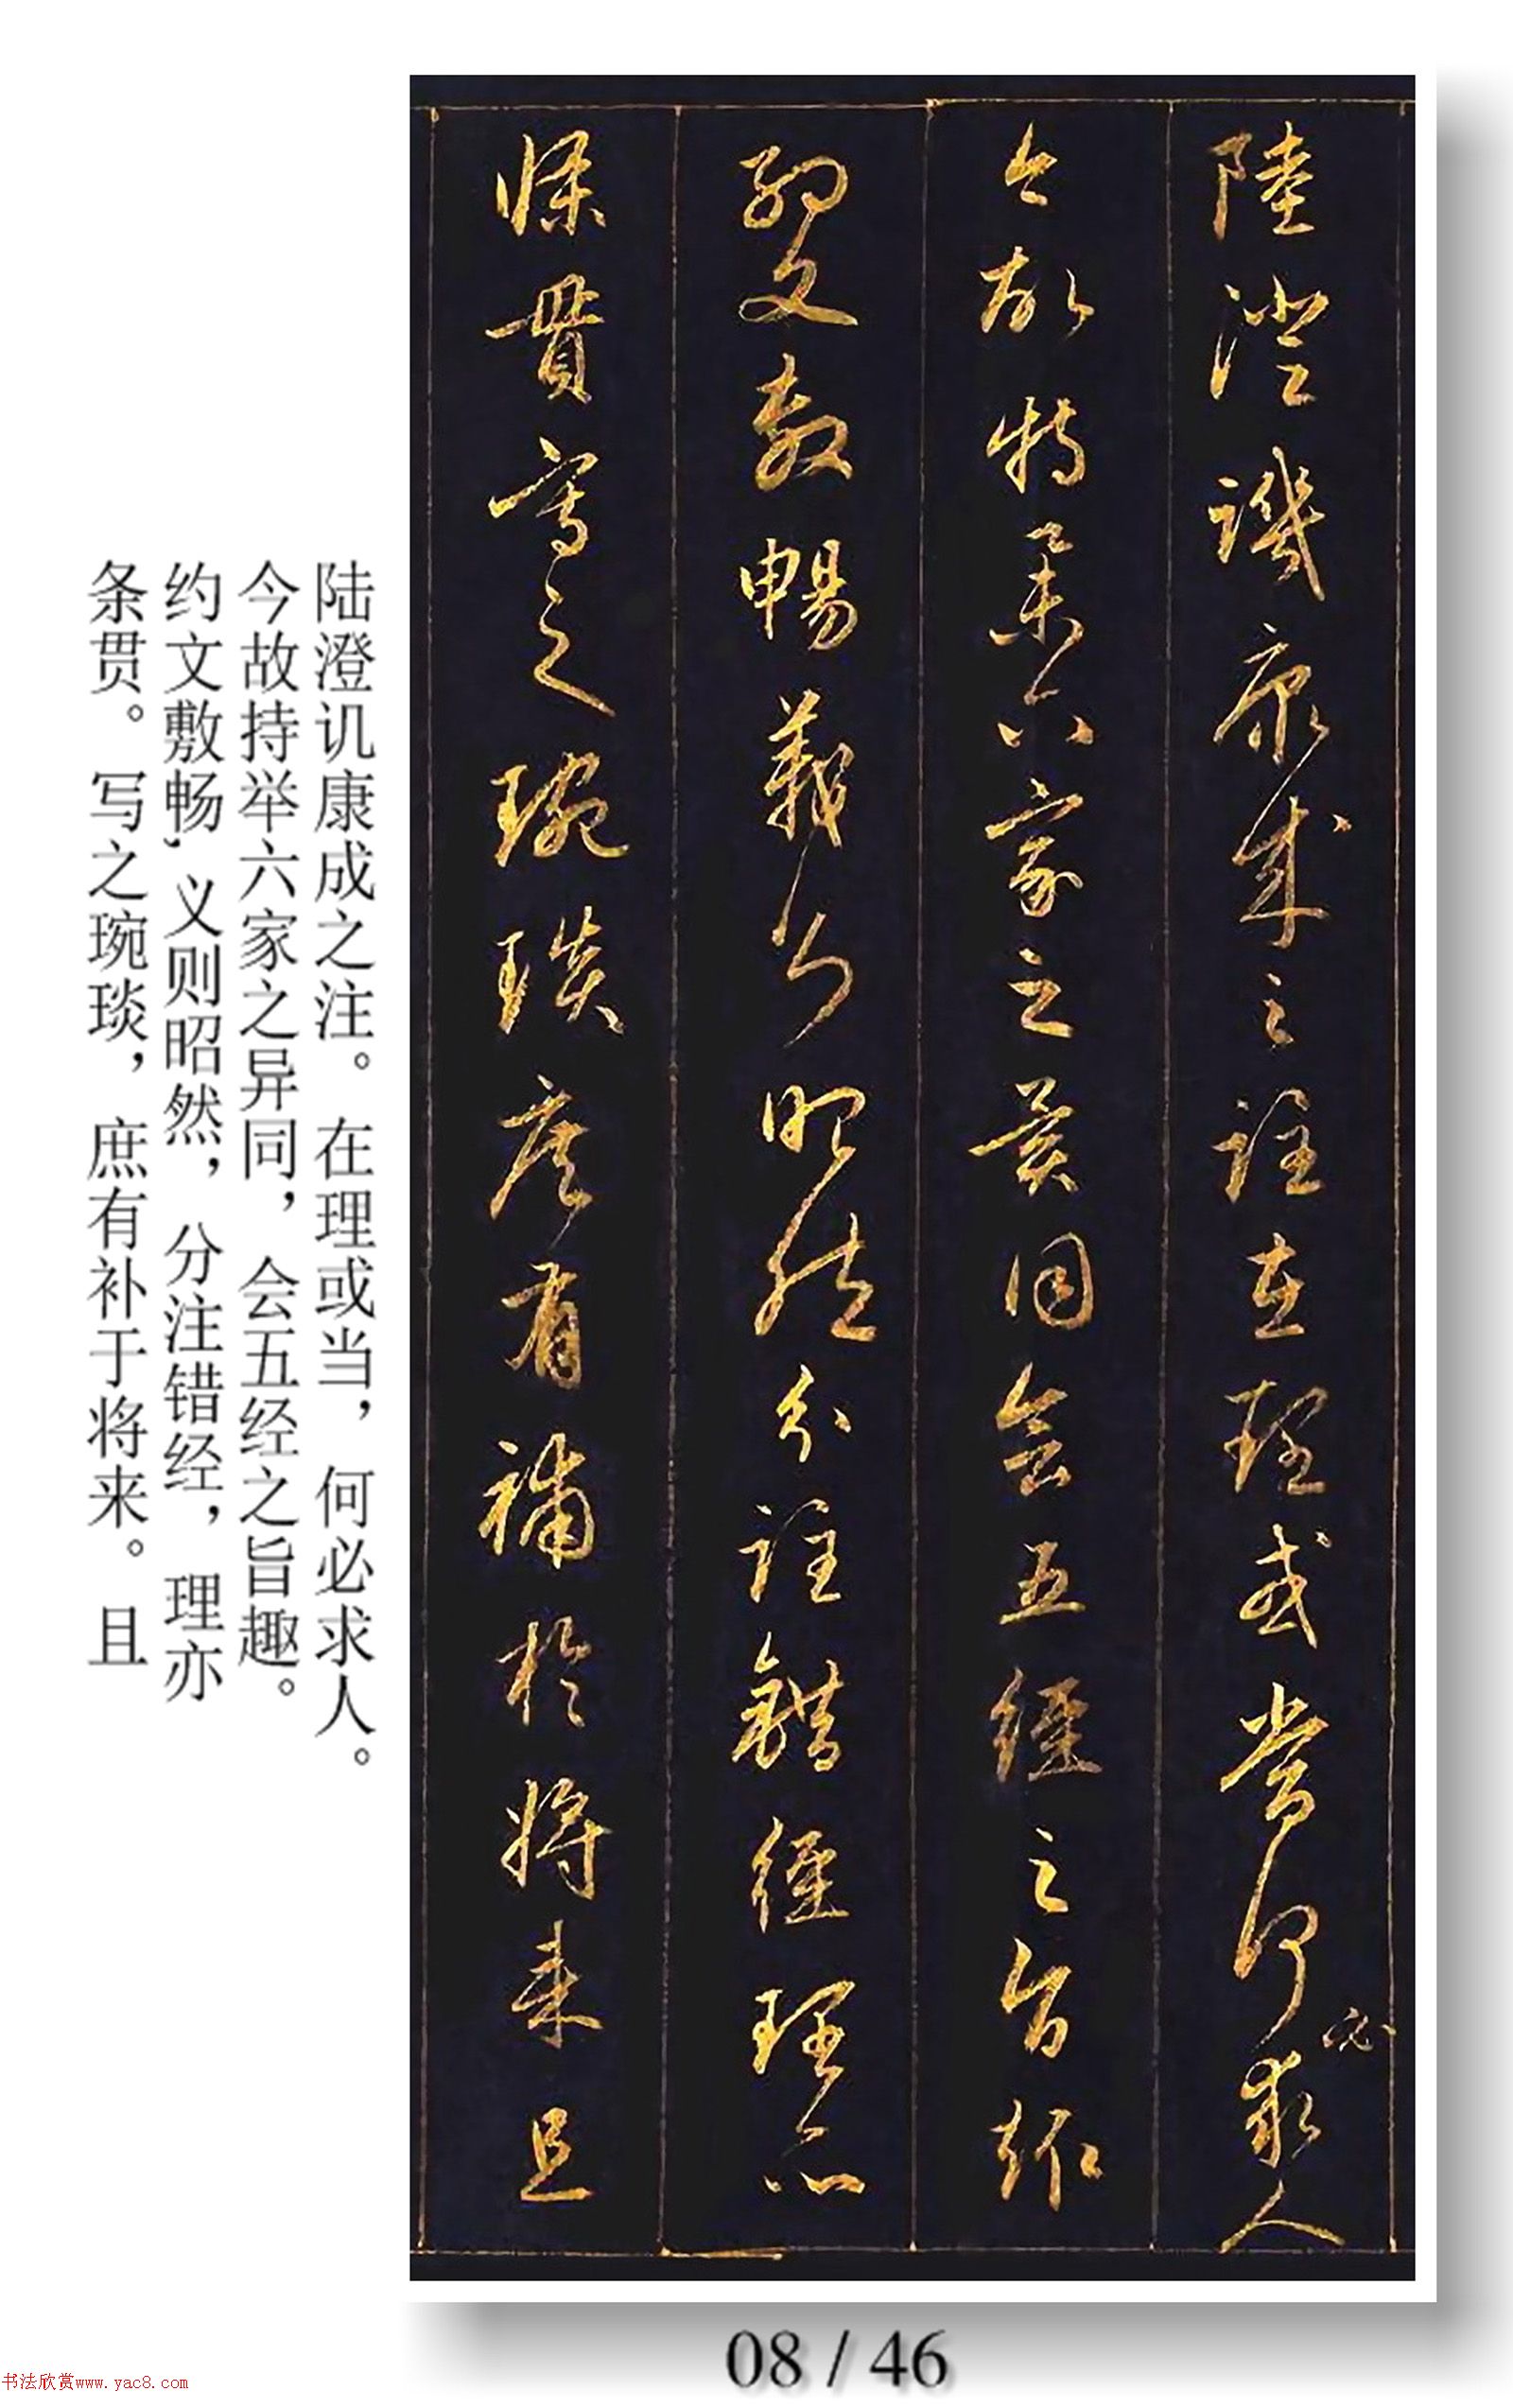 陸澄譏康成之註在理或當何必求人
今故特舉六家之異同會五經之旨趣
約文敷暢義則昭然分註錯經理亦
條貫寫之琬琰庶有補於將來且
陆澄讥康成之注。在理或当，何必求人。
今故持举六家之异同，会五经之旨趣。
约文敷畅，义则昭然，分注错经，理亦
条贯。写之琬琰，庶有补于将来。且
08 / 46
书法欣赏www.yac8.com